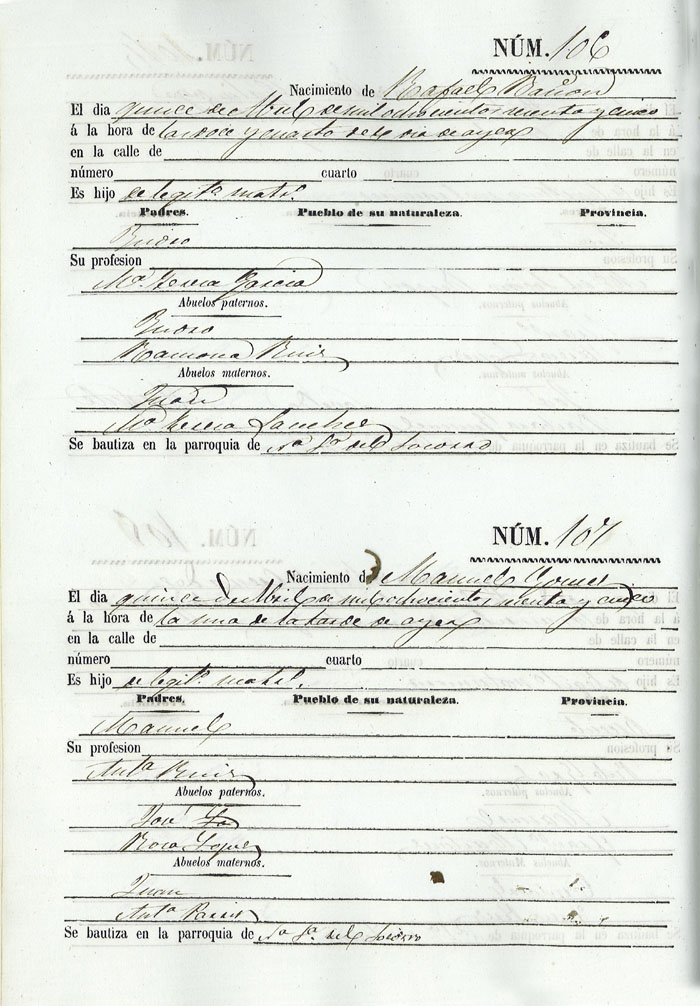 NÚM. 106
Nacimiento de Rafael Bañon
El dia quince de Abril de mil ochocientos sesenta y cinco
á la hora de las doce y cuarto del dia de ayer
en la calle de
número cuarto
Es hijo de legit.º mat.º
Padres. Pueblo de su naturaleza. Provincia.
Pedro
Su profesion
M.ª Teresa Garcia
Abuelos paternos.
Pedro
Ramona Ruiz
Abuelos maternos.
Juan
M.ª Teresa Sanchez
Se bautiza en la parroquia de N.ª S.ª del Socorro
NÚM. 107
Nacimiento de Manuel Gomez
El dia quince de Abril de mil ochocientos sesenta y cinco
á la hora de la una de la tarde de ayer
en la calle de
número cuarto
Es hijo de legit.º mat.º
Padres. Pueblo de su naturaleza. Provincia.
Manuel
Su profesion
Ant.ª Ruiz
Abuelos paternos.
José
Rosa Lopez
Abuelos maternos.
Juan
Ant.ª
Se bautiza en la parroquia de N.ª S.ª del Socorro